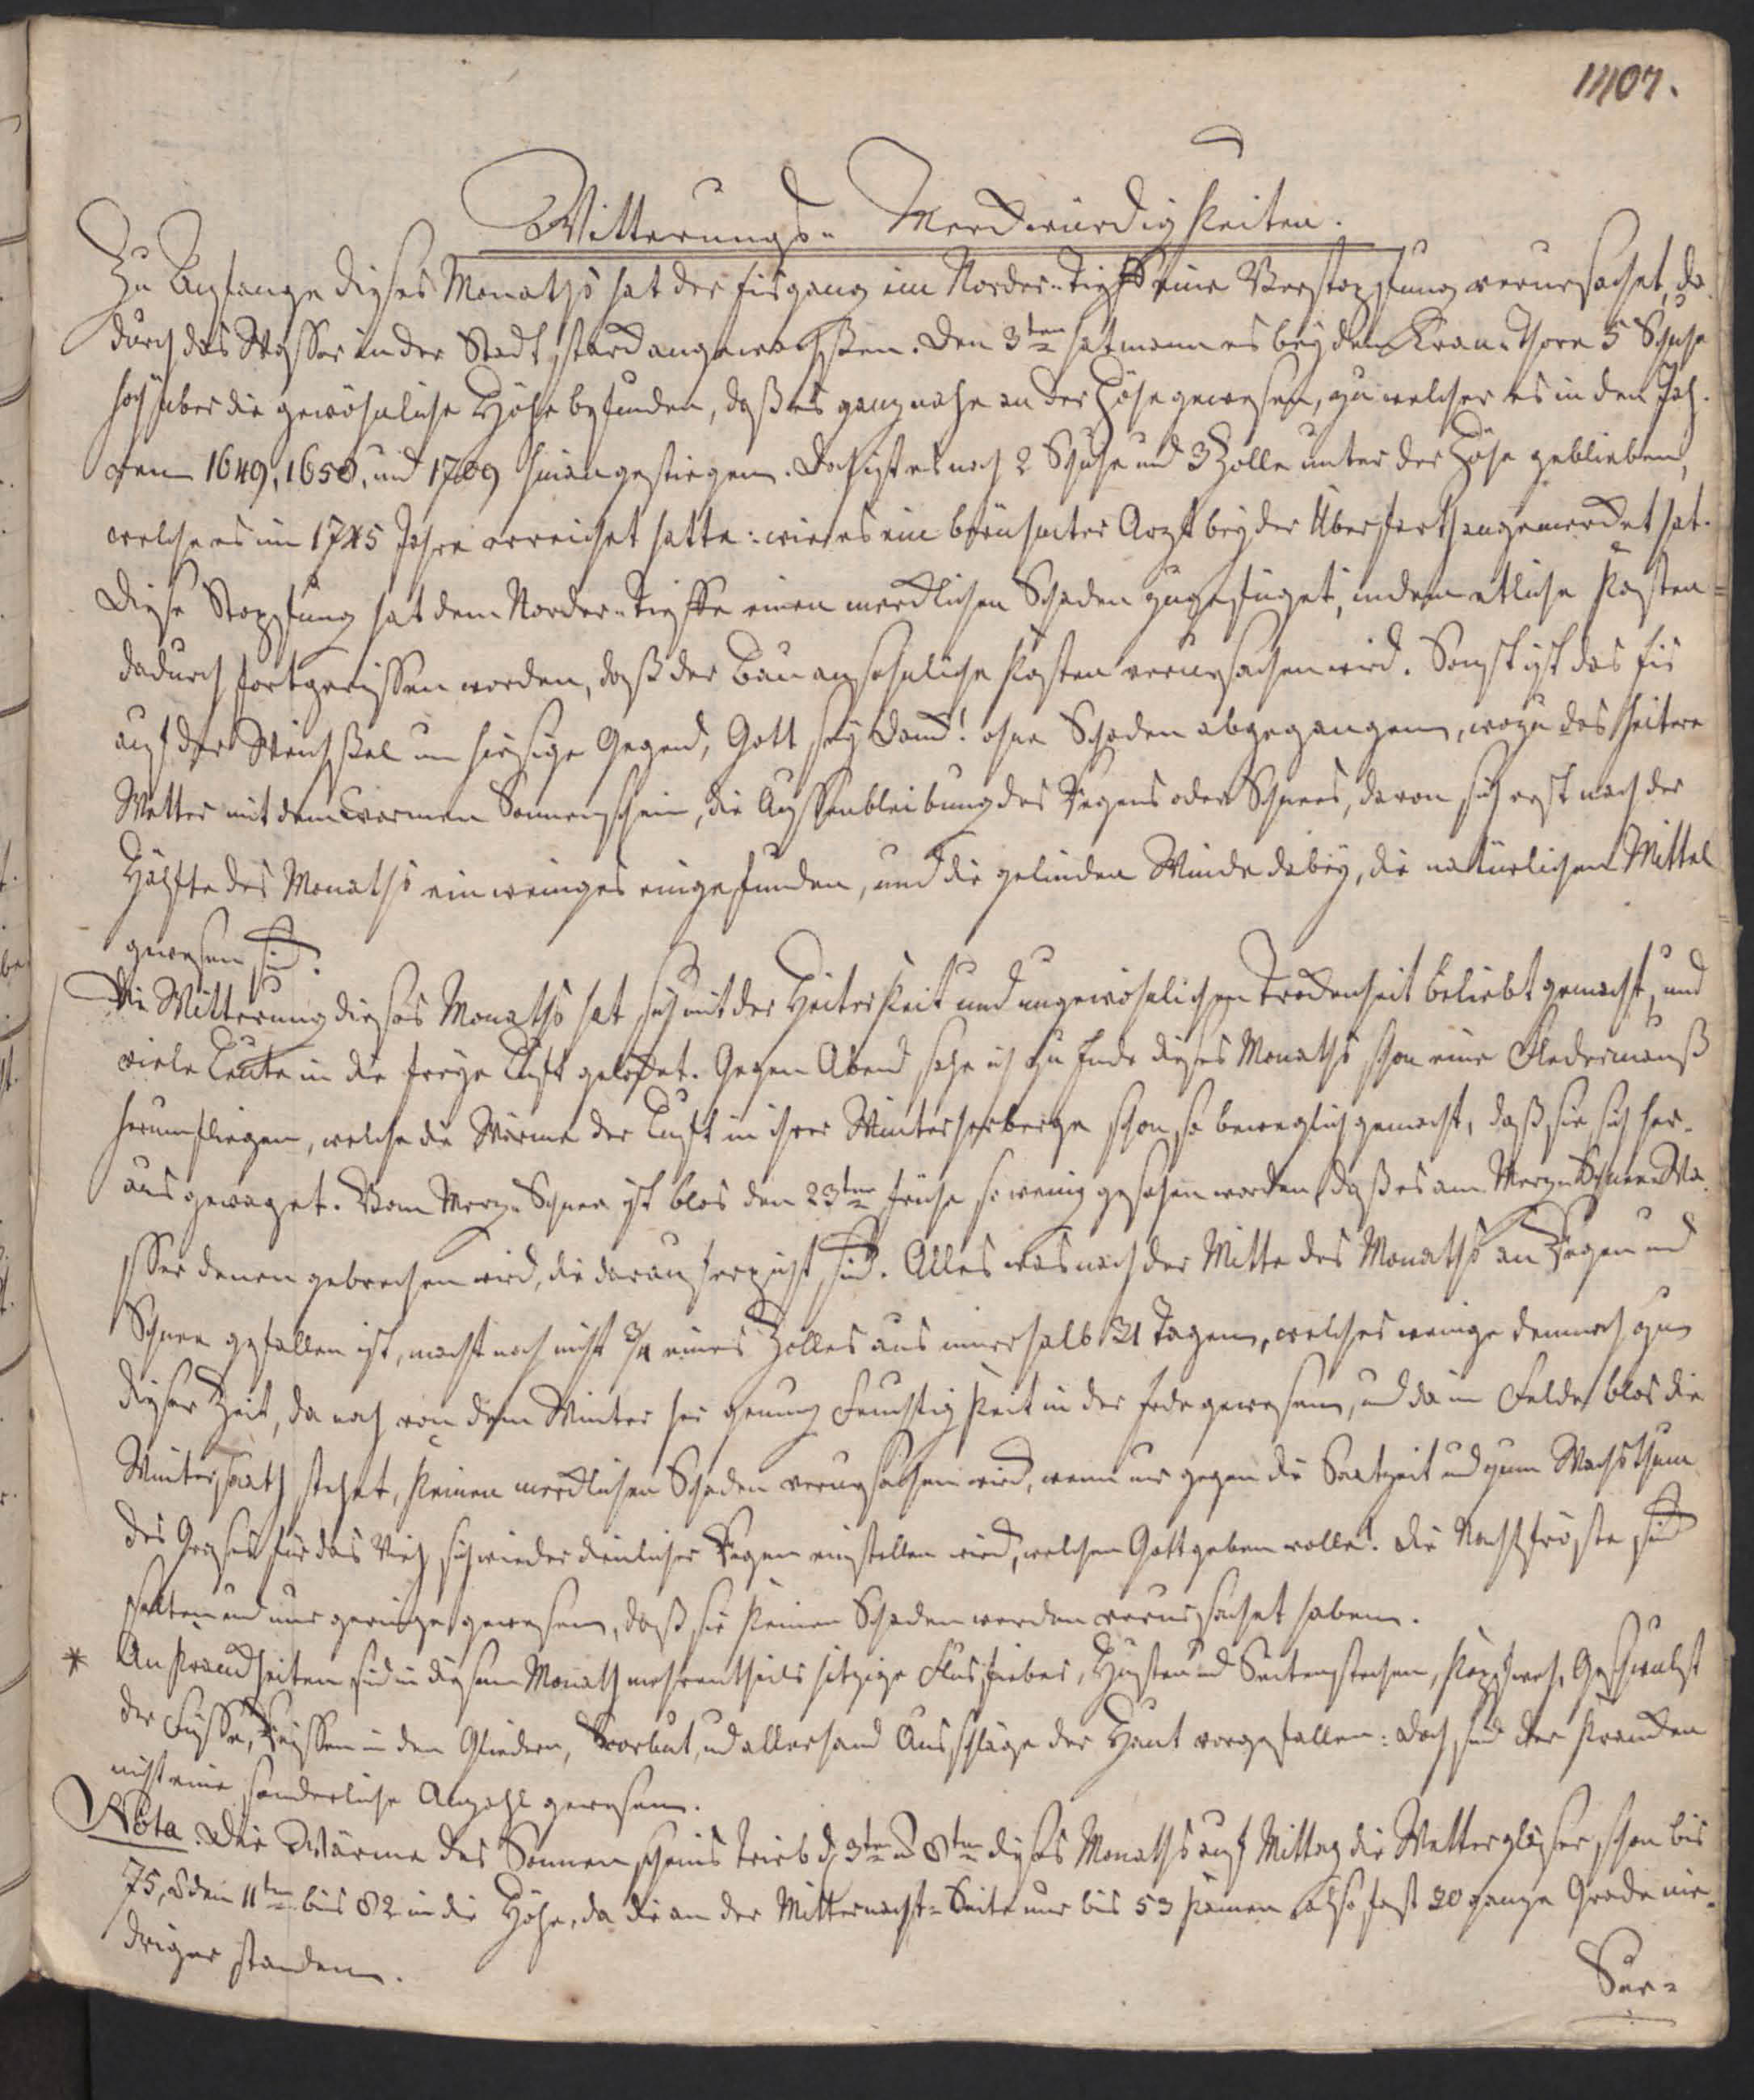 1407.
Witterungs- Merckwürdigkeiten.
Zu Anfange dieses Monaths hat der Eisgang im Norder-Tieff eine Verstopfung verursachet, da
durch das Wasser in der Stadt starck angewachssen. Den 3ten hat mann es bey dem Kran-Thore 5 Schuhe
hoch über die gewöhnliche Höhe befunden, daß es ganz nahe an der Höhe gewesen, zu welcher es in den Jah-
ren 1649, 1650, und 1709 hinangestiegen. Doch ist es noch 2 Schuhe und 3 Zolle unter der Höhe geblieben,
welche es im 1745 Jahre erreichet hatte: wie es ein berühmter Arzt bey der Überfarth angemercket hat.
Diese Stopfung hat dem Norder-Tieffe einen mercklichen Schaden zugefüget, indem etliche Kasten
dadurch fortgerissen worden, daß der Bau ansehnliche Kosten verursachen wird. Sonst ist das Eis
auf der Weichssel um hiesige Gegend, Gott sey Danck! ohne Schaden abgegangen, wozu das heitere
Wetter mit dem warmen Sonnenschein, die Aussenbleibung des Regens oder Schnees, davon sich erst nach der
Hälfte des Monaths ein weniges eingefunden, und die gelinden Winde dabey, die natürlichen Mittel
gewesen sind.
Die Witterung dieses Monaths hat sich mit der Heiterkeit und ungewöhnlichen Trockenheit beliebt gemacht, und
viele Leute in die freye Luft gelocket. Gegen Abend sahe ich zu Ende dieses Monaths schon eine Fledermauß
herumfliegen, welche die Wärme der Luft in ihrer Winterherberge schon so beweglich gemacht, daß sie sich her-
aus gewaget. Vom Merz-Schnee ist blos den 23ten frühe so wenig gesehen worden, daß es am Merz-Schnee-Wa-
sser denen gebrechen wird, die darauf erpicht sind. Alles was nach der Mitte des Monaths an Regen und
Schnee gefallen ist, macht noch nicht 3/4 eines Zolles aus innerhalb 31 Tagen, welches wenige dennoch zu
dieser Zeit, da noch von dem Winter her genung Feuchtigkeit in der Erde gewesen, und da im Felde blos die
Wintersaath stehet, keinen mercklichen Schaden verursachen wird, wenn nur gegen die Saatzeit und zum Wachsthum
des Grases für das Vieh sich wieder dienlicher Regen einstellen wird, welchen Gott geben wolle! Die Nachtfröste sind
selten und nur geringe gewesen, daß sie keinen Schaden werden verursachet haben.
* An Kranckheiten sind in diesem Monath mehrentheils hitzige Flusfieber, Husten und Seitenstechen, Kopfweh, Geschwulst
der Füsse, Reissen in den Gliedern, Scorbut, und allerhand Ausschläge der Haut vorgefallen: doch sind der Krancken
nicht eine sonderliche Anzahl gewesen.
Nota. Die Wärme des Sonnenscheins trieb d. 3ten u 8ten dieses Monaths auf Mittag die Wettergläser schon bis
75, u den 11ten bis 82 in die Höhe, da die an der Mitternacht-Seite nur bis 53 kamen also fast 30 ganze Grade nie-
driger standen.